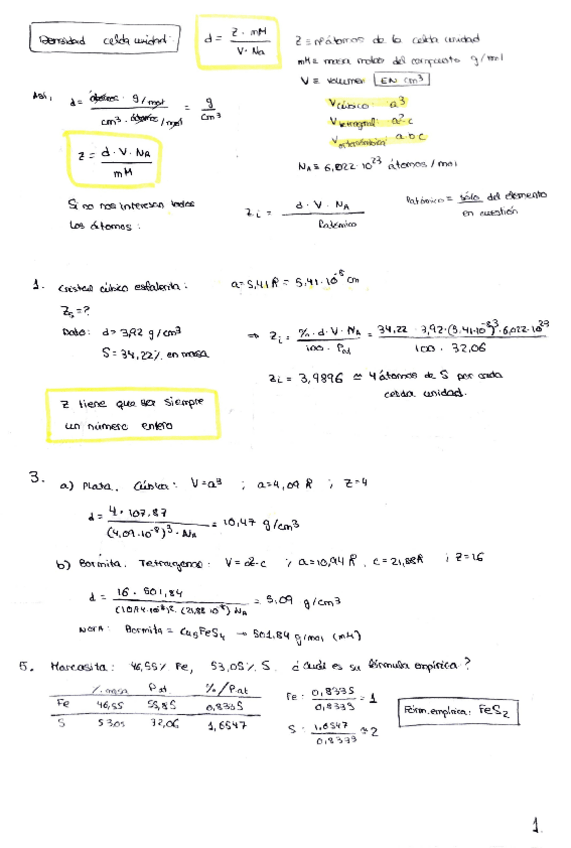 Densidad celda unidad: d = Z · mM / V · Na
Z = nº átomos de la celda unidad
mM = masa molar del compuesto g/mol
V = volumen EN cm³
Así, d = átomos · g/mol / cm³ · átomos/mol = g / cm³
Vcúbico: a³
Vtetragonal: a²·c
Vortorrómbico: a·b·c
Z = d · V · NA / mM
NA = 6,022·10²³ átomos/mol
Si no nos interesan todos los átomos:
Zi = d · V · NA / Patómico
Patómico = sólo del elemento en cuestión
1. Cristal cúbico esfalerita: a = 5,41 Å = 5,41·10⁻⁸ cm
Zs = ?
Dato: d = 3,92 g/cm³
S = 34,22% en masa
⇒ Zi = % · d · V · NA / 100 · PM = 34,22 · 3,92 · (5,41·10⁻⁸)³ · 6,022·10²³ / 100 · 32,06
Zi = 3,9896 ≃ 4 átomos de S por cada celda unidad.
Z tiene que ser siempre un número entero
3. a) Plata. Cúbica: V = a³ ; a = 4,09 Å ; Z = 4
d = 4 · 107,87 / (4,09·10⁻⁸)³ · NA = 10,47 g/cm³
b) Bornita. Tetragonal: V = a²·c ; a = 10,94 Å, c = 21,88 Å ; Z = 16
d = 16 · 501,84 / (10,94·10⁻⁸)². (21,88·10⁻⁸) NA = 5,09 g/cm³
NOTA: Bornita = Cu5FeS4 → 501,84 g/mol (mM)
5. Marcasita: 46,55% Fe, 53,05% S. ¿Cuál es su fórmula empírica?
% masa Pat %/Pat
Fe 46,55 55,85 0,8335
S 53,05 32,06 1,6547
Fe: 0,8335 / 0,8335 = 1
S: 1,6547 / 0,8335 ≃ 2
Fórm. empírica: FeS2
1.